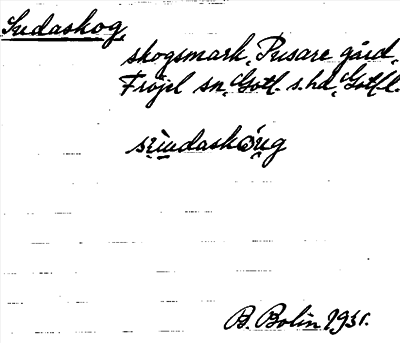 Sudaskog,
skogsmark, Pusare gård,
Fröjel sn, Gotl. s. hd, Gotl. l.
B. Bolin 1931.